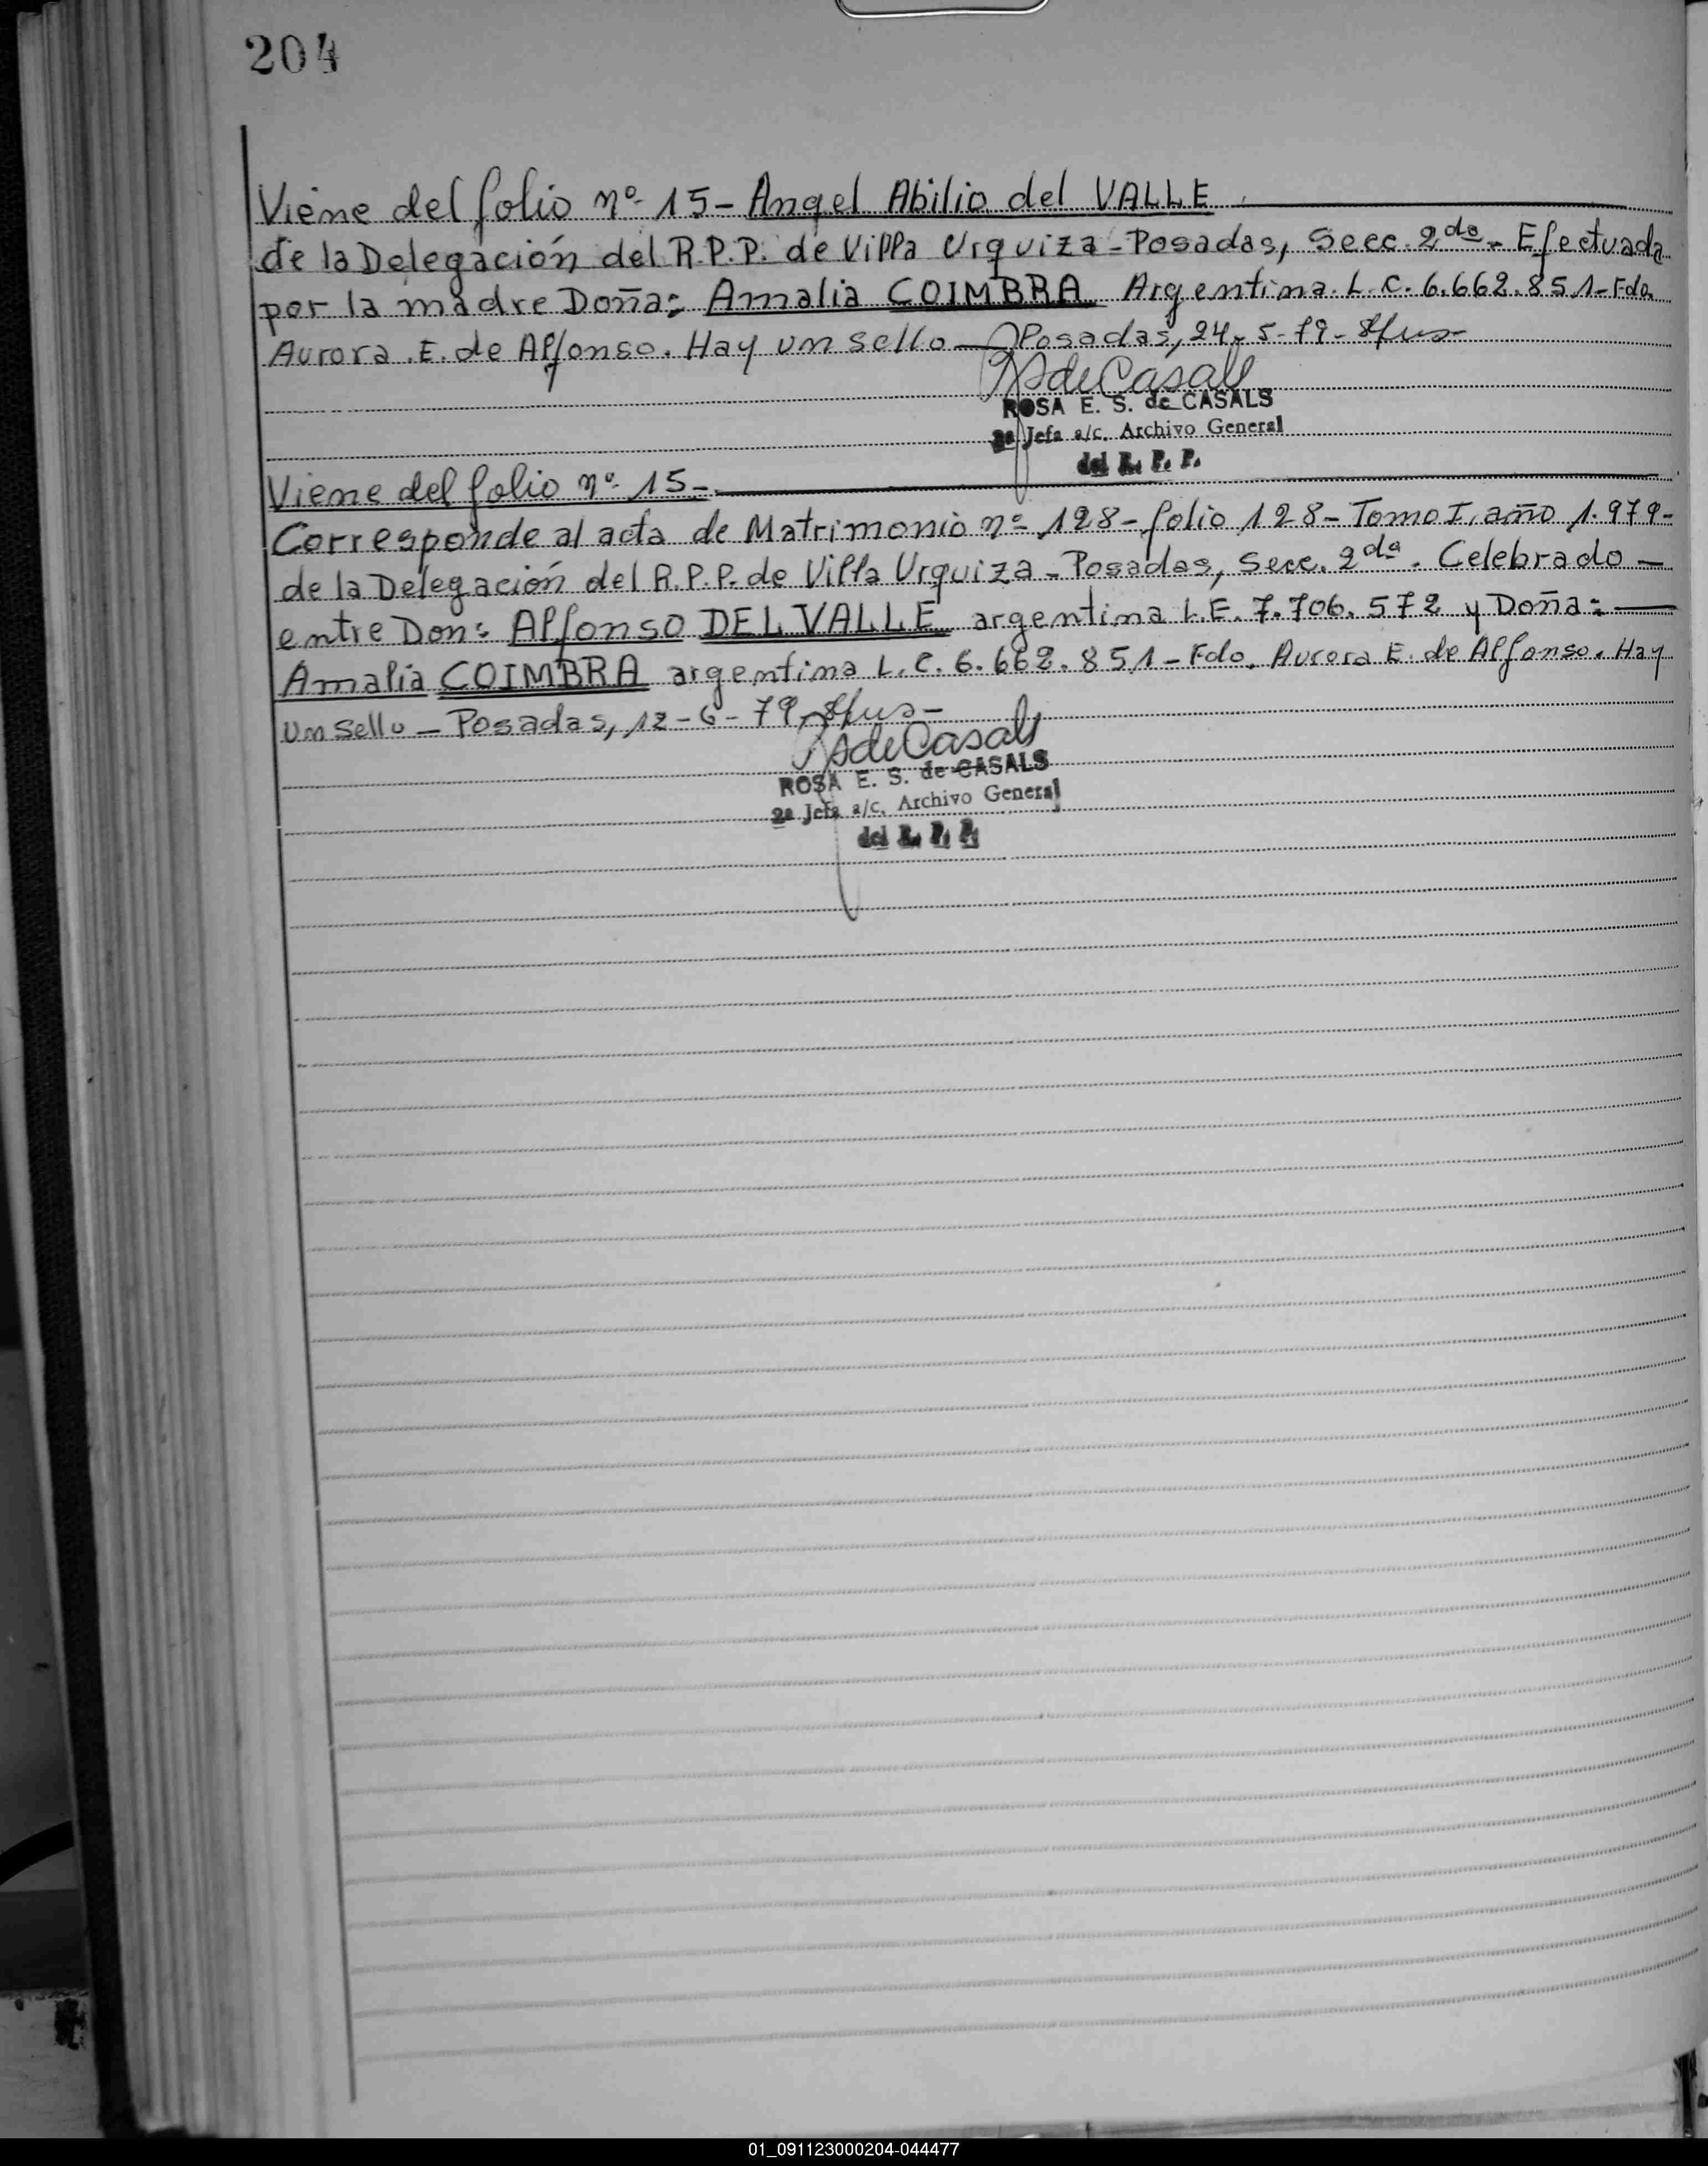 204
Viene del folio nº 15 - Angel Abilio del VALLE
de la Delegación del R.P.P. de Villa Urquiza - Posadas, Secc. 2da. - Efectuada
por la madre Doña: Amalia COIMBRA Argentina. L.C. 6.662.851 - Fdo.
Aurora. E. de Alfonso. Hay un sello — Posadas, 24-5-79 -
RSdeCasals
ROSA E. S. de CASALS
2a Jefa a/c. Archivo General
del R. P. P.
Viene del folio nº 15 -
Corresponde al acta de Matrimonio nº 128 - folio 128 - Tomo I, año 1.979 -
de la Delegación del R.P.P. de Villa Urquiza - Posadas, Secc. 2da. Celebrado —
entre Don: Alfonso DEL VALLE argentina L.E. 7.706.572 y Doña: —
Amalia COIMBRA argentina L.C. 6.662.851 - Fdo. Aurora E. de Alfonso. Hay
un sello — Posadas, 12-6-79 -
RSdeCasals
ROSA E. S. de CASALS
2a Jefa a/c. Archivo General
del R. P. P.
01_091123000204-044477